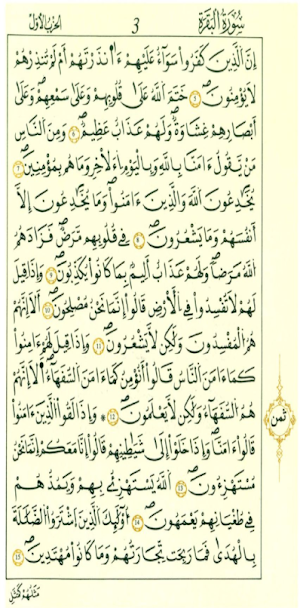 سُورَةُ الْبَقَرَةِ 3 الحزب الأول
إِنَّ ٱلذِينَ كَفَرُواْ سَوَآءٌ عَلَيْهِمُۥٓ ءَآنذَرْتَهُمُۥٓ أَمْ لَمْ تُنذِرْهُمْ
لَا يُومِنُونَۖ ٥ خَتَمَ ٱللَّهُ عَلَىٰ قُلُوبِهِمْ وَعَلَىٰ سَمْعِهِمْۖ وَعَلَىٰٓ
أَبْصٰ۪رِهِمْ غِشَٰوَةٌۖ وَلَهُمْ عَذَابٌ عَظِيمٌۖ ٦ وَمِنَ ٱلنَّاسِ
مَنْ يَّقُولُ ءَامَنَّا بِاللَّهِ وَبِالْيَوْمِ اِ۬لَاخِرِ وَمَا هُم بِمُومِنِينَۖ ٧
يُخَٰدِعُونَ ٱللَّهَ وَٱلذِينَ ءَامَنُواْۖ وَمَا يُخَٰدِعُونَ إِلَّآ
أَنفُسَهُمْ وَمَا يَشْعُرُونَۖ ٨ فِے قُلُوبِهِم مَّرَضٌۖ فَزَادَهُمُ
ٱللَّهُ مَرَضاًۖ وَلَهُمْ عَذَابٌ اَلِيمٌۢ بِمَا كَانُواْ يُكَذِّبُونَۖ ٩ وَإِذَا قِيلَ
لَهُمْ لَا تُفْسِدُواْ فِے اِ۬لَارْضِ قَالُوٓاْ إِنَّمَا نَحْنُ مُصْلِحُونَۖ ١٠ أَلَآ إِنَّهُمْ
هُمُ ٱلْمُفْسِدُونَ وَلَٰكِن لَّا يَشْعُرُونَۖ ١١ وَإِذَا قِيلَ لَهُمُۥٓ ءَامِنُواْ
كَمَآ ءَامَنَ ٱلنَّاسُ قَالُوٓاْ أَنُومِنُ كَمَآ ءَامَنَ ٱلسُّفَهَآءُۖ أَلَآ إِنَّهُمْ
هُمُ ٱلسُّفَهَآءُ وَلَٰكِن لَّا يَعْلَمُونَۖ ١٢ ۞ وَإِذَا لَقُواْ ٱلذِينَ ءَامَنُواْ
قَالُوٓاْ ءَامَنَّاۖ وَإِذَا خَلَوِاْ اِلَىٰ شَيَٰطِينِهِمْ قَالُوٓاْ إِنَّا مَعَكُمُۥٓ إِنَّمَا نَحْنُ
مُسْتَهْزِءُونَۖ ١٣ ٱللَّهُ يَسْتَهْزِۓُ بِهِمْ وَيَمُدُّهُمْ
فِے طُغْيَٰنِهِمْ يَعْمَهُونَۖ ١٤ أُوْلَٰٓئِكَ ٱلذِينَ ٱشْتَرَوُاْ الضَّلَٰلَةَ
بِالْهُدَىٰ فَمَا رَبِحَت تِّجَٰرَتُهُمْ وَمَا كَانُواْ مُهْتَدِينَۖ ١٥
مَثَلُهُمْ كَمَثَلِ
ثمن